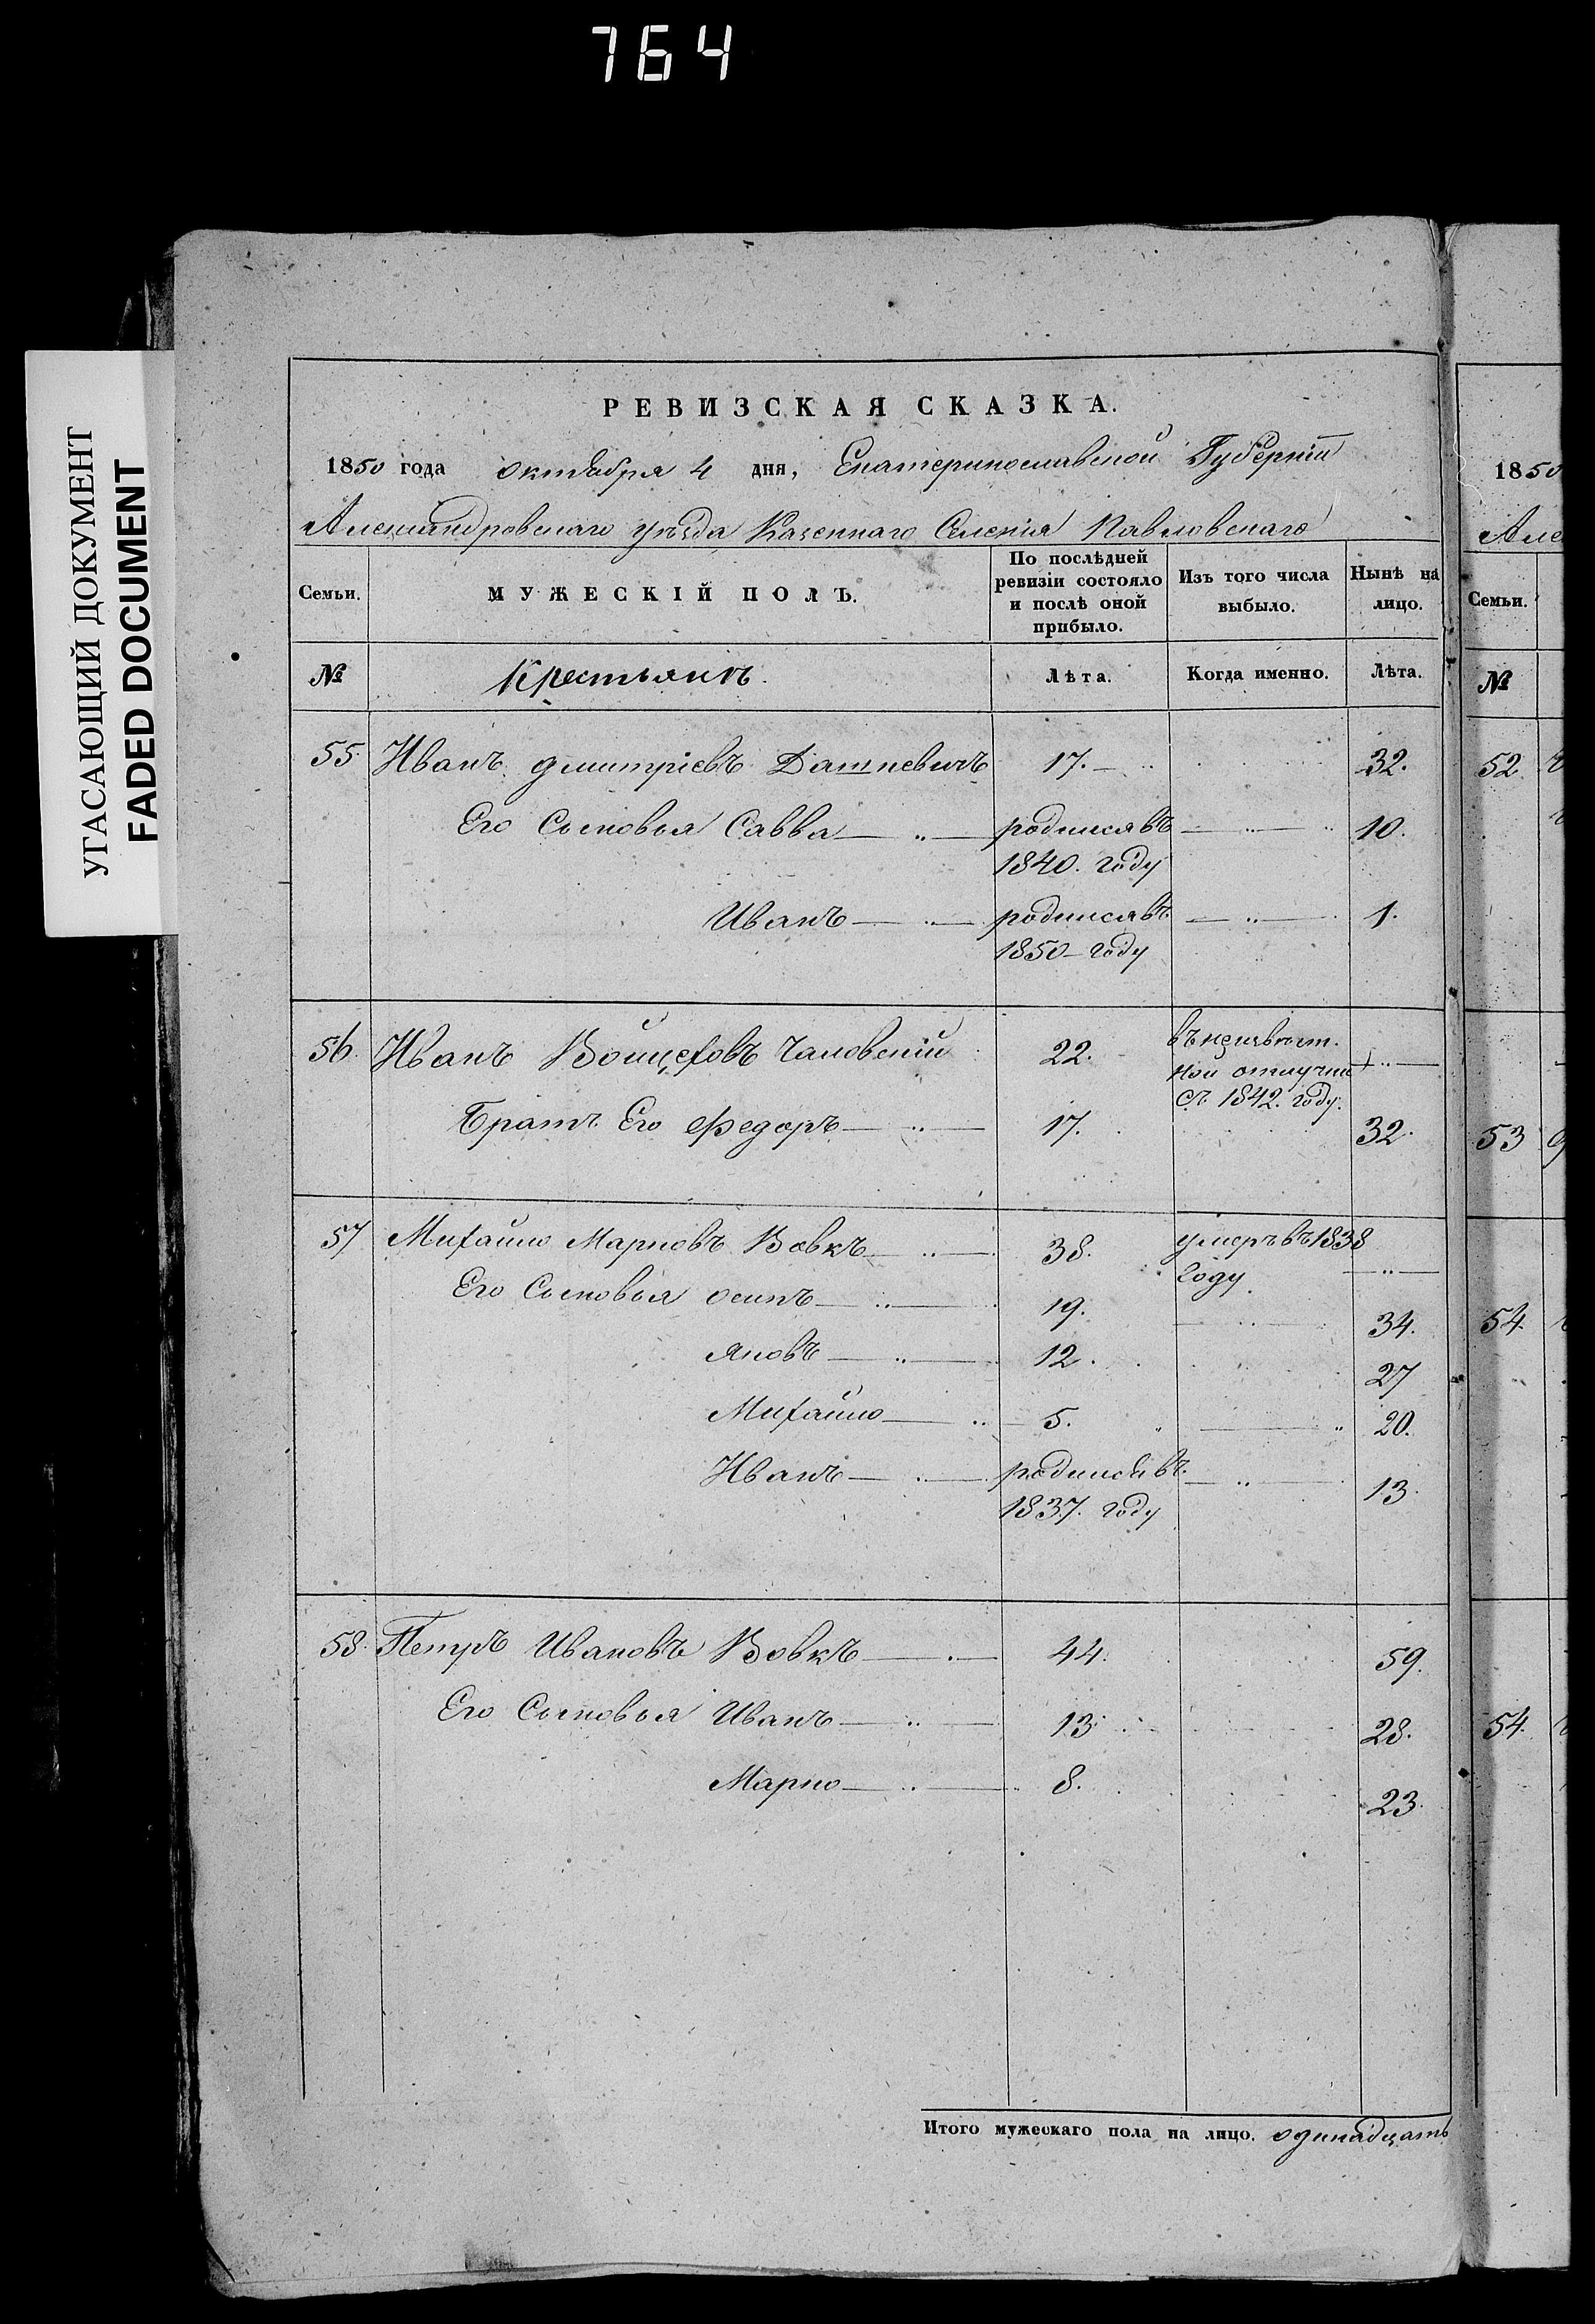 764
УГАСАЮЩИЙ ДОКУМЕНТ
FADED DOCUMENT
РЕВИЗСКАЯ СКАЗКА.
1850 года октября 4 дня, Екатеринославской Губерніи
Александровскаго уѣзда Казеннаго Селенія Павловскаго
Семьи. МУЖЕСКІЙ ПОЛЪ. По послѣдней ревизіи состояло и послѣ оной прибыло. Изъ того числа выбыло. Нынѣ на лицо.
№ Крестьянъ. Лѣта. Когда именно. Лѣта.
55 Иванъ Дмитріевъ Дашкевичъ 17. 32.
Его Сыновья Савва родился въ 10.
1840. году
Иванъ родился въ 1.
1850 году
56. Иванъ Войцеховъ Чаловскій 22. въ неизвѣст.
ной отлучки
съ 1842. году.
Братъ Его Федоръ 17. 32.
57 Михайло Марковъ Вовкъ 38. умеръ въ 1838
году
Его Сыновья Осипъ 19. 34.
Яковъ 12. 27
Михайло 5. 20.
Иванъ родился въ 13.
1837. году
58. Петръ Ивановъ Вовкъ 44. 59.
Его Сыновья Иванъ 13. 28.
Марко 8. 23.
Итого мужескаго пола на лицо. одинадцать
1850
Але
Семьи.
№
52
53
54.
54.